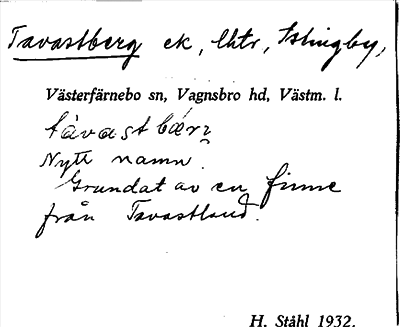 Tavastberg ek, lhtr, Islingby,
Västerfärnebo sn, Vagnsbro hd, Västm. l.
távast bærɿ
Nytt namn.
Grundat av en finne
från Tavastland.
H. Ståhl 1932.